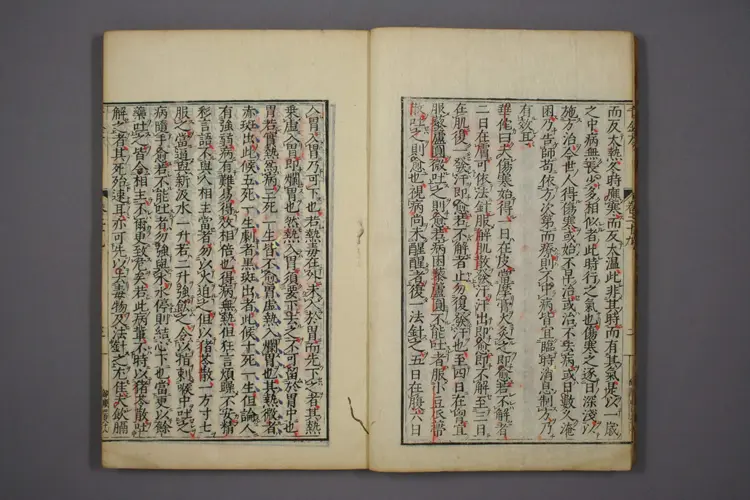 而反大熱冬時應寒而反大溫此非其時而有其氣是以一歲
之中病無長少多相似者此時行之氣也傷寒之逐日深淺以
施方治今世人得傷寒或始不早治或治不主病或日數久淹
困乃告師師苟依方次第而療則不中病皆宜臨時消息制方乃
有效耳
華佗曰夫傷寒始得一日在皮當摩膏火灸之即愈若不解者
二日在膚可依法針服解肌散發汗汗出即愈若不解至三日
在肌復一發汗即愈若不解者止勿復發汗也至四日在胸宜
服藜蘆圓微吐之則愈若病困藜蘆圓不能吐者服小豆瓜蒂
散吐之則愈也視病尚未醒醒者復一法針之五日在腹六日
入胃入胃乃可下也若熱毒在外未入於胃而先下之者其熱
乘虛入胃即爛胃也然熱入胃須要下去之不可留於胃中也
胃若實熱為病三死一生皆不愈胃虛熱入爛胃也其熱微者
赤斑出此候五死一生劇者黑斑出者此候十死一生但論人
有強弱病有難易得效相倍也得病無熱但狂言煩躁不安精
彩言語不與人相主當者勿以火迫之但以豬苓散一方寸匕
服之當逼與新汲水一升若二升強飲之令以指刺喉中吐之
病隨手愈若不能吐者勿強與水水停則結心下也當更以餘
藥吐之皆令相主不爾更致危矣若此病輩不時以豬苓散吐
解之者其死殆速耳亦可先以去毒物及法針之尤佳夫飲膈